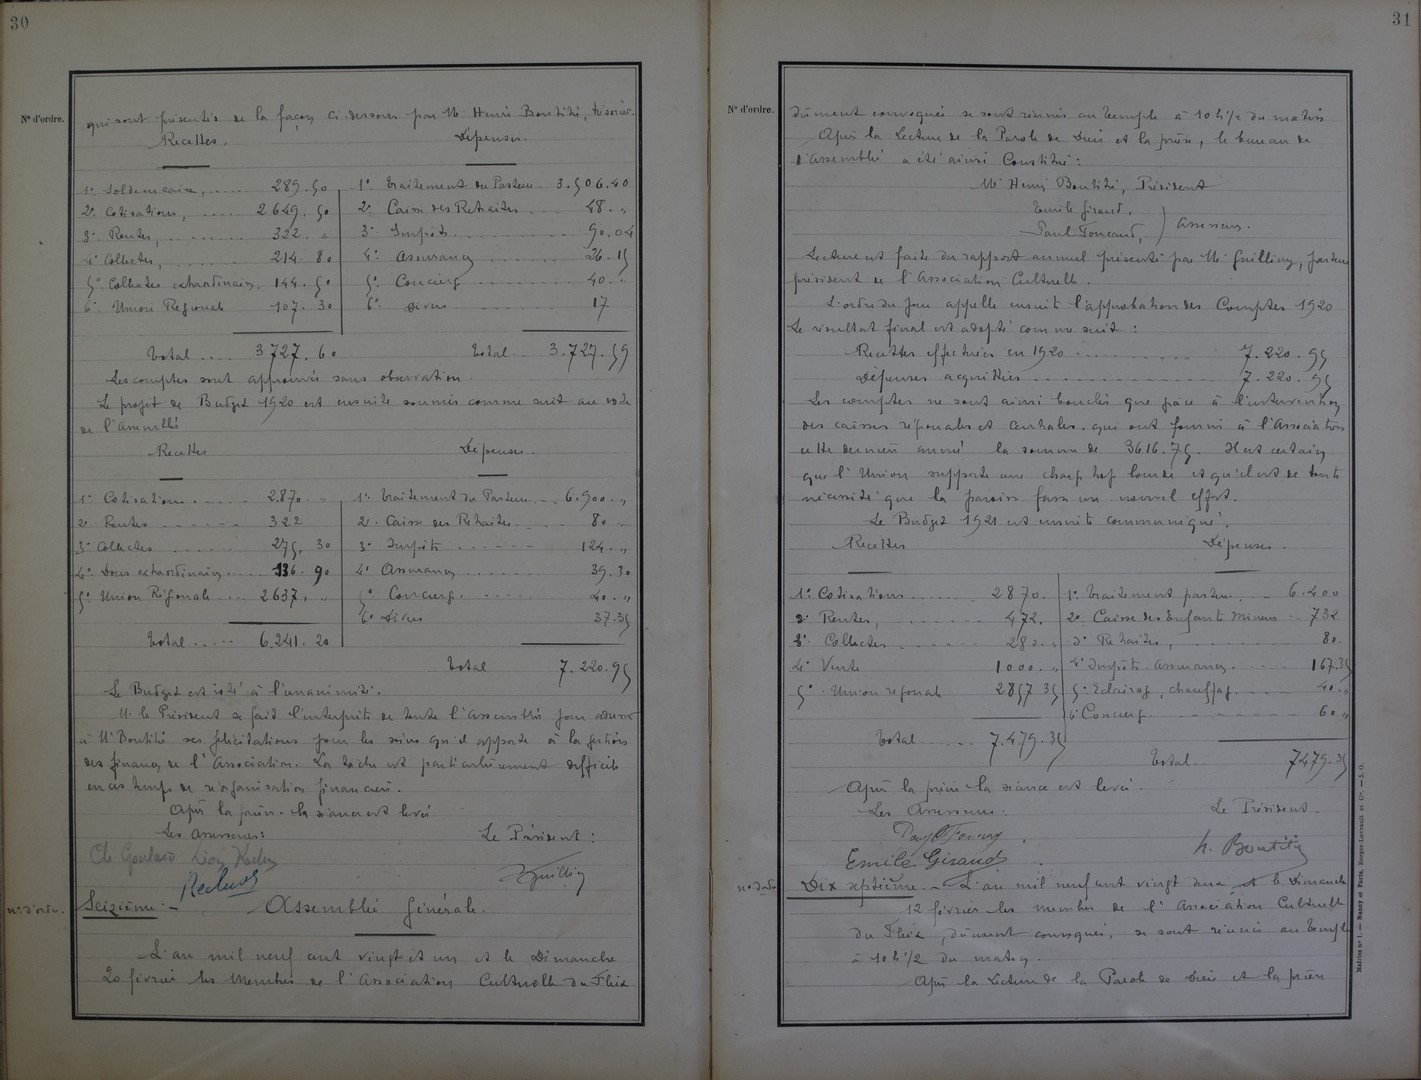 30
N° d'ordre.
qui sont présentés de la façon ci dessous par Mr Henri Boutitié, trésorier.
Recettes. Dépenses.
1° Solde en caisse, ..... 289.50 1° Traitement du Pasteur 3.506.40
2° Cotisations, ..... 2649.50 2° Caisse des Retraites .... 48. "
3° Rentes, ......... 322. " 3° Impôts ......... 90.04
4° Collectes, ......... 214 80 4° Assurances ......... 26.15
5° Collectes extraordinaires, 144.50 5° Concierge ......... 40. "
6° Union Régionale ..... 107.30 6° Divers ......... 17
Total .... 3727.60 Total ... 3.727.59
Les comptes sont approuvés sans observation.
Le projet de Budget 1920 est ensuite soumis comme suit au vote
de l'Assemblée
Recettes Dépenses.
1° Cotisations ..... 2.870 " 1° Traitement du Pasteur ... 6.900. "
2° Rentes ..... 322 2° Caisse des Retraites.... 80 "
3° Collectes ..... 275.30 3° Impôts ...... 124. "
4° Dons extraordinaires .... 136.90 4° Assurances ........ 39.30
5° Union Régionale ... 2637. " 5° Concierge. ........ 40. "
6° Divers 37.35
Total ..... 6.241.20
Total 7.220.95
Le Budget est voté à l'unanimité.
M. le Président se fait l'interprète de toute l'Assemblée pour adresser
à Mr Boutitié ses félicitations pour les soins qu'il apporte à la gestion
des finances de l'Association. La tâche est particulièrement difficile
en ces temps de réorganisation financière.
Après la prière la séance est levée
Les assesseurs: Le Président:
Seizième - Assemblée Générale.
L'an mil neuf cent vingt et un et le Dimanche
20 février les Membres de l'Association Cultuelle du Fleix
31
N° d'ordre.
dûment convoqués se sont réunis au Temple à 10 h 1/2 du matin
Après la Lecture de la Parole de Dieu et la prière, le bureau de
l'Assemblée a été ainsi Constitué:
Mr Henri Boutitié, Président
Emile Giraud,
Paul Foucaud, } Assesseurs.
Lecture est faite du rapport annuel présenté par Mr Guilling, pasteur
président de l'Association Cultuelle.
L'ordre du jour appelle ensuite l'approbation des Comptes 1920
Le résultat final est adopté comme suit:
Recettes effectuées en 1920 .......... 7.220.95
Dépenses acquittées ............ 7.220.95
Les comptes ne sont ainsi bouclés que grâce à l'intervention
des caisses régionales et centrales, qui ont fourni à l'Association
cette dernière année la somme de 3616.75. Il est certain
que l'Union supporte une charge trop lourde et qu'il est de toute
nécessité que la paroisse fasse un nouvel effort.
Le Budget 1921 est ensuite communiqué.
Recettes Dépenses.
1° Cotisations ....... 2870. 1° Traitement pasteur ..... 6.400
2° Rentes, ......... 472. 2° Caisse des Enfants Mineurs .. 732
3° Collectes ......... 280. " 3° Retraites, ......... 80.
4° Vente 1000. " 4° Impôts Assurances. ..... 167.35
5° Union régionale 2857 35 5° Eclairage, chauffage. .... 40. "
6° Concierge ......... 60 "
Total ....... 7.479.35
Total... 7479.35
Après la prière la séance est levée.
Les Assesseurs: Le Président.
Emile Giraud H. Boutitié
Dix septième. - L'an mil neuf cent vingt deux et le Dimanche
12 février les membres de l'Association Cultuelle
du Fleix, dûment convoqués, se sont réunis au Temple
à 10 h 1/2 du matin.
Après la Lecture de la Parole de Dieu et la prière
Modèle n° 1. — Nancy et Paris, Berger-Levrault et Cie. — 3. O.